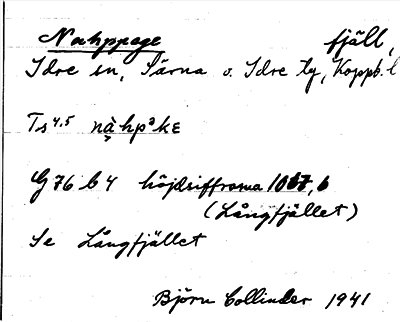 Nahppage fjäll,
Idre sn, Särna o. Idre tg, Koppb. l
Ts 4,5 nạ̀hpᵊkɛ
G 76 b 4 höjdsiffrorna 1067,6
(Långfjället)
Se Långfjället
Björn Collinder 1941